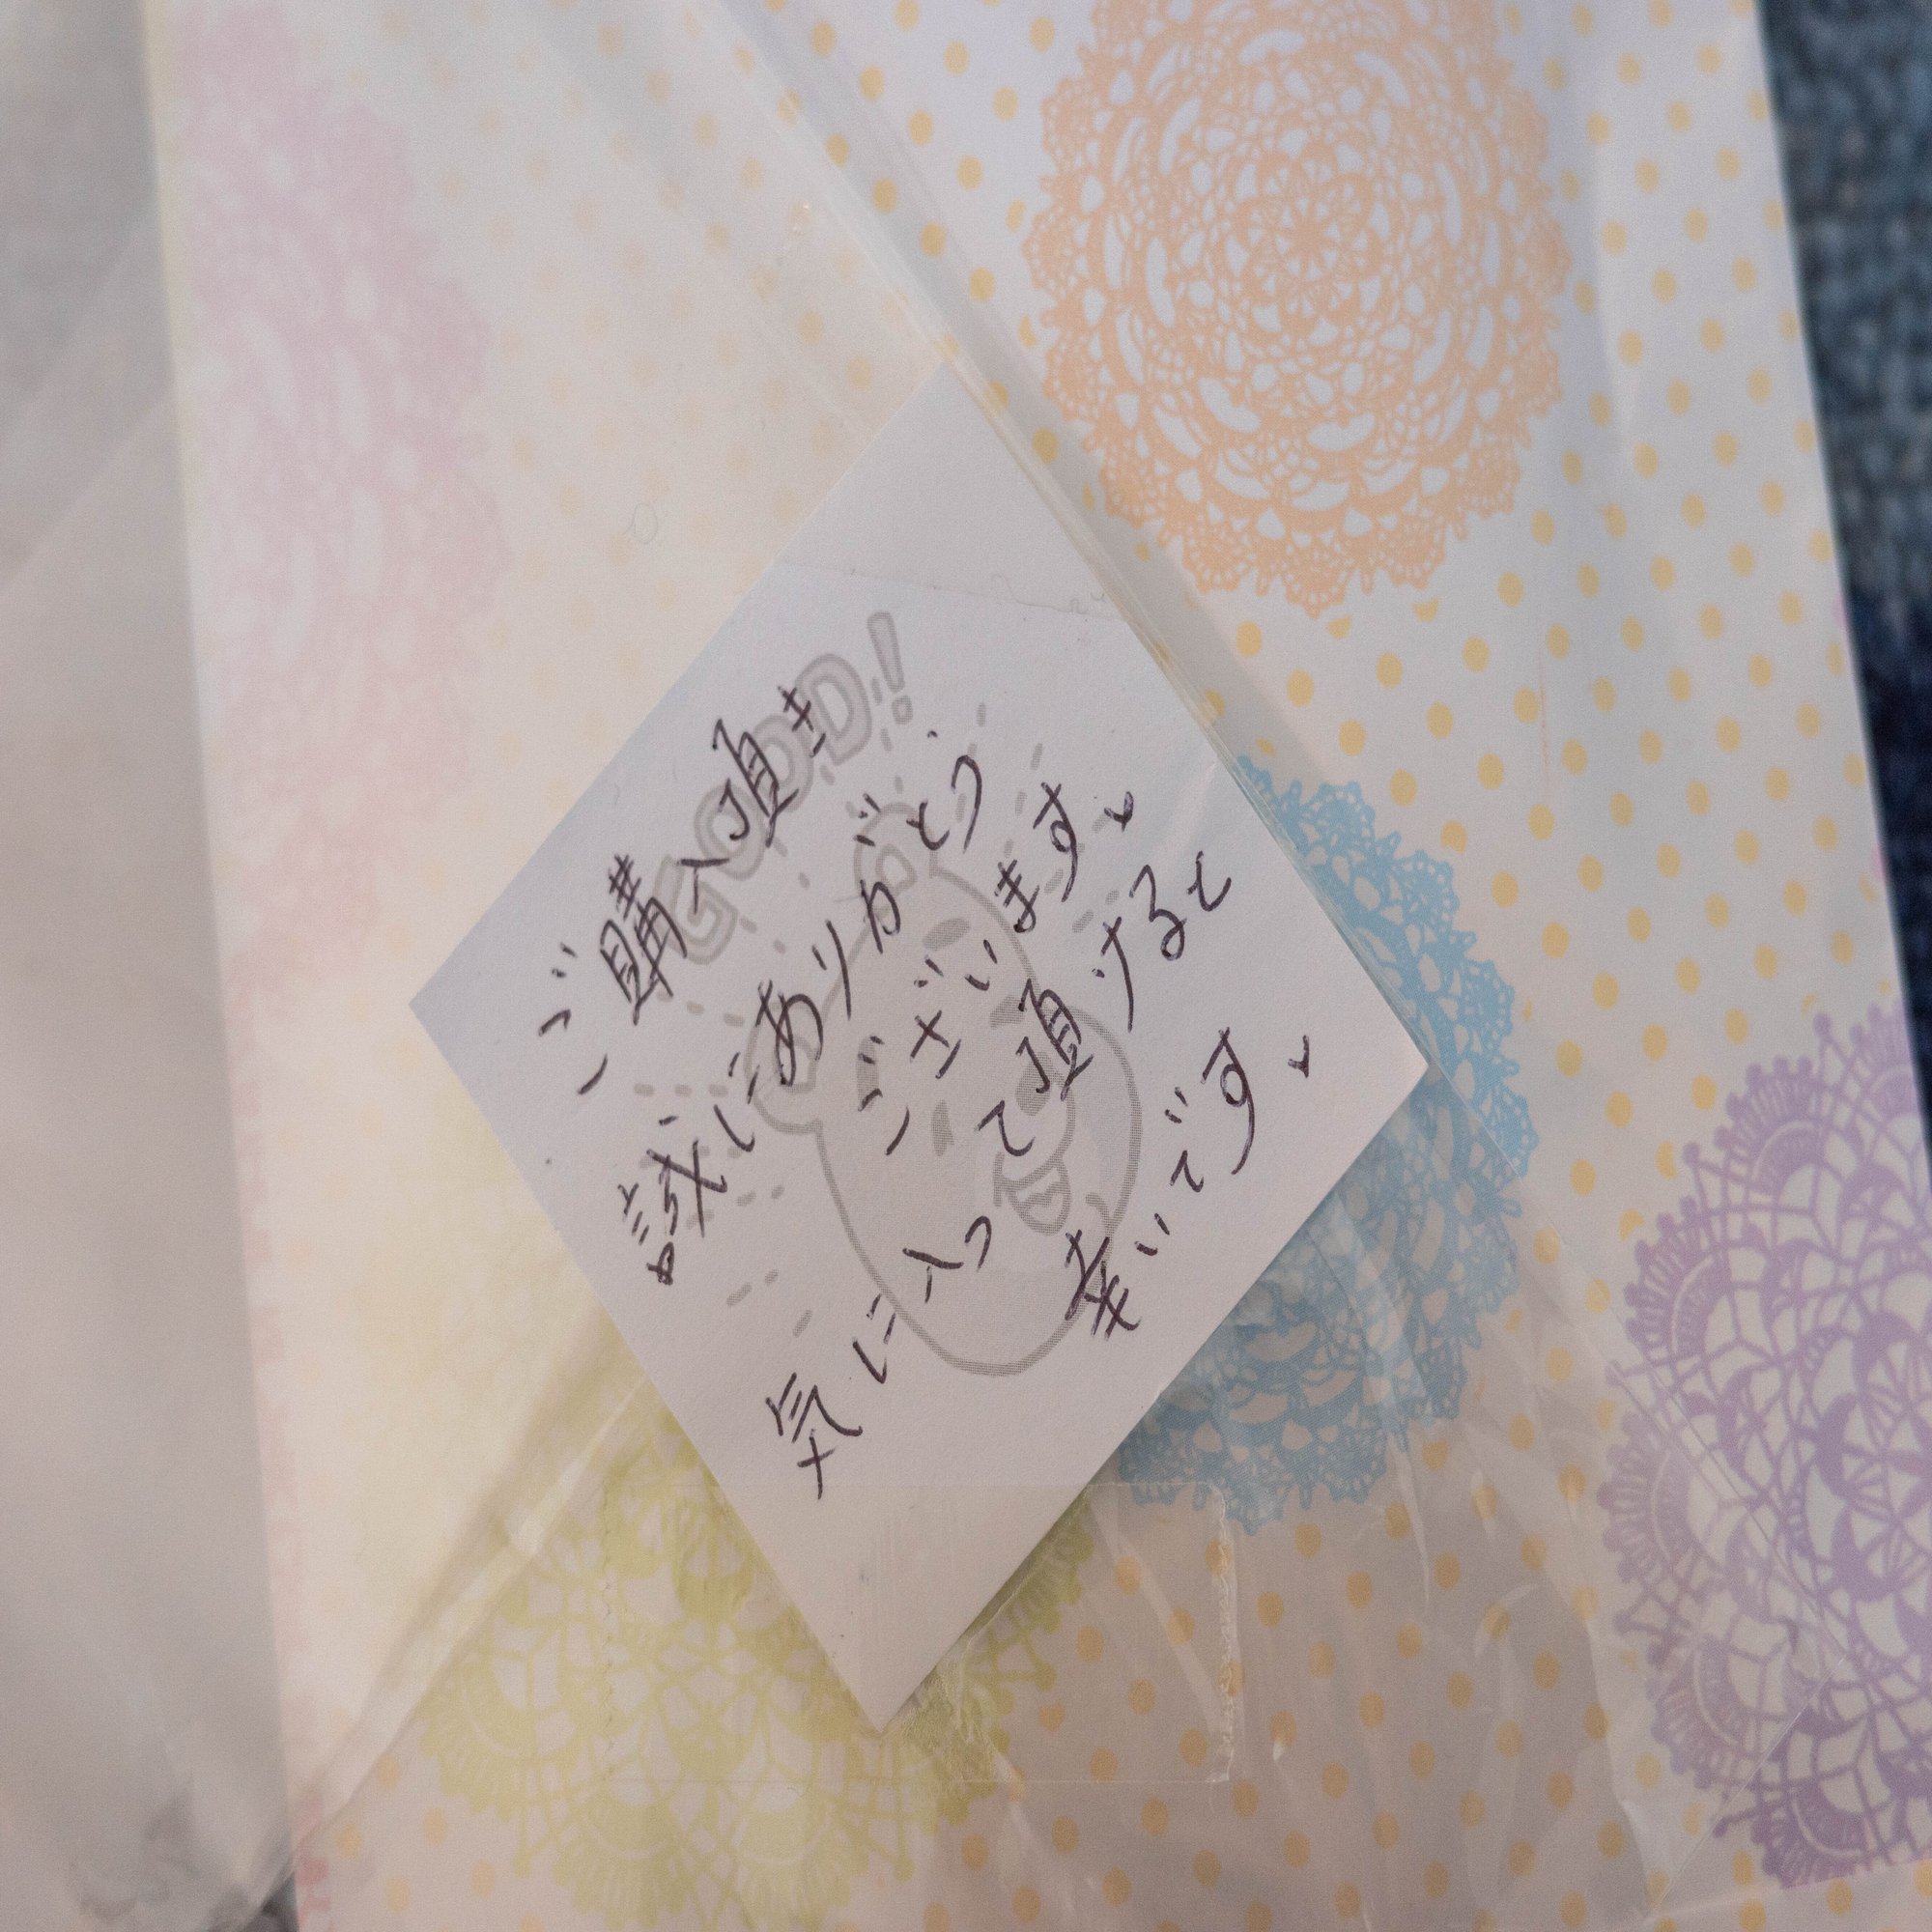 GOOD!
ご購入頂き
誠にありがとう
ございます
気に入って頂けると
幸いです